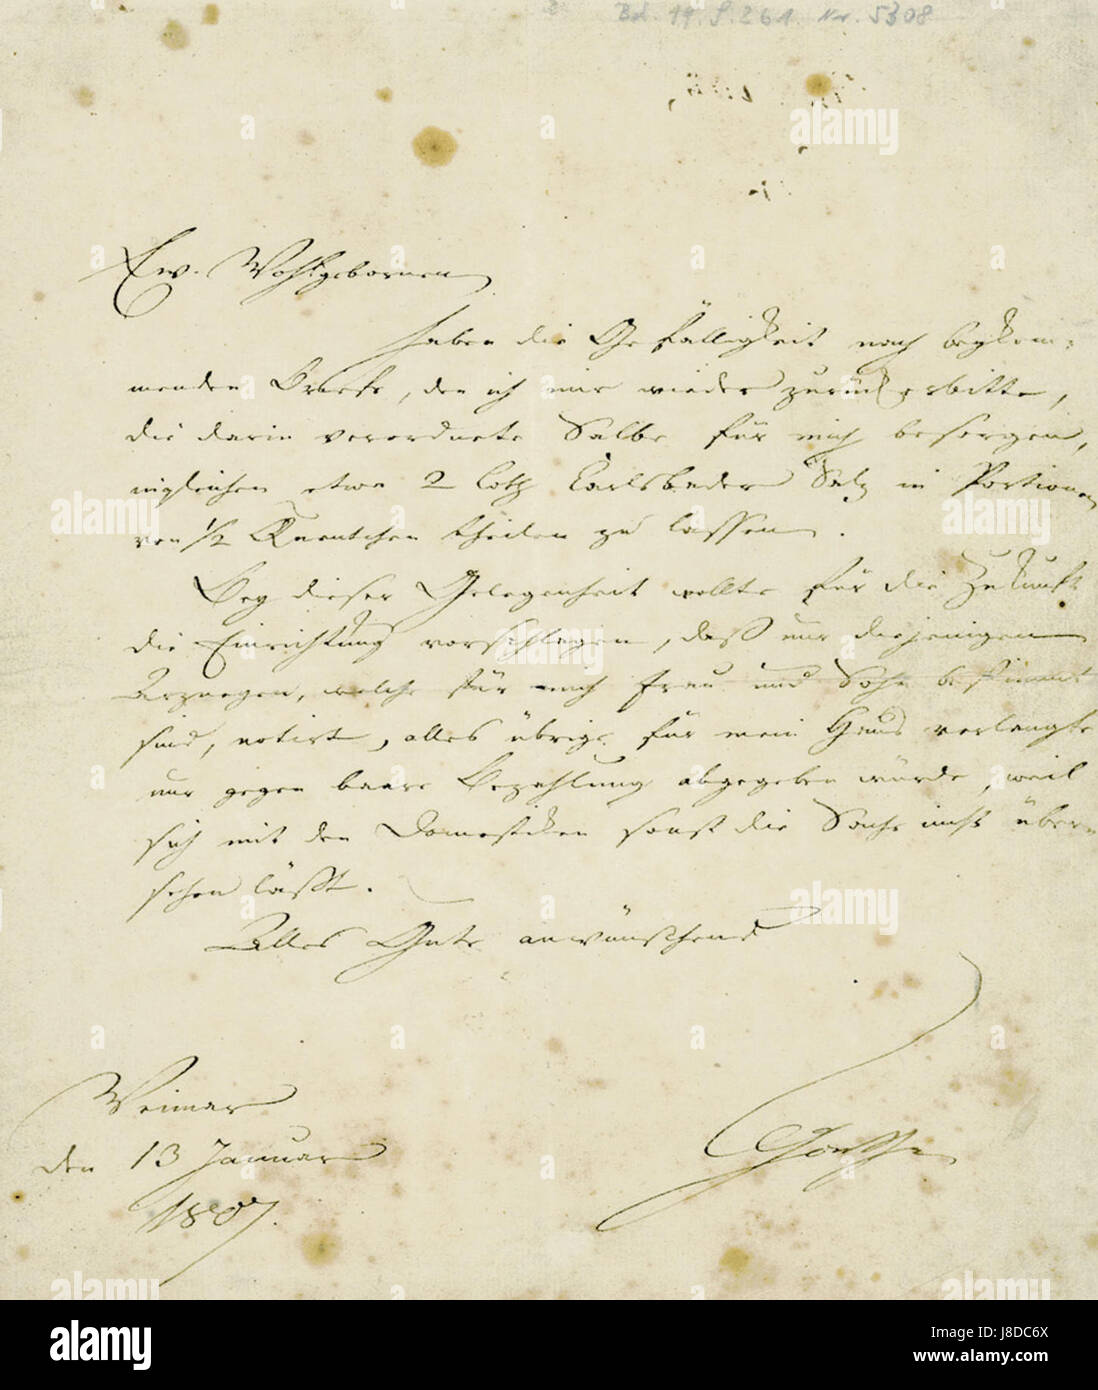 Bd. 19. S. 261. Nr. 5308
Ew. Wohlgebornen
haben die Gefälligkeit nach beykom-
menden Briefe, den ich mir wieder zurück erbitte,
die darin verordnete Salbe für mich besorgen,
ingleichen etwa 2 Loth Carlsbader Salz in Portionen
von 1/2 Quentchen theilen zu lassen.
Bey dieser Gelegenheit wollte für die Zukunft
die Einrichtung vorschlagen, daß nur diejenigen
Arzneyen, welche für mich Frau und Sohn bestimmt
sind, notirt, alles übrige für mein Haus verlangte
nur gegen baare Bezahlung abgegeben würde, weil
sich mit den Domestiken sonst die Sache nicht über-
sehen läßt.
Alles Gute anwünschend
Weimar
den 13 Januar
1807.
Goethe
alamy
Image ID: J8DC6X
www.alamy.com